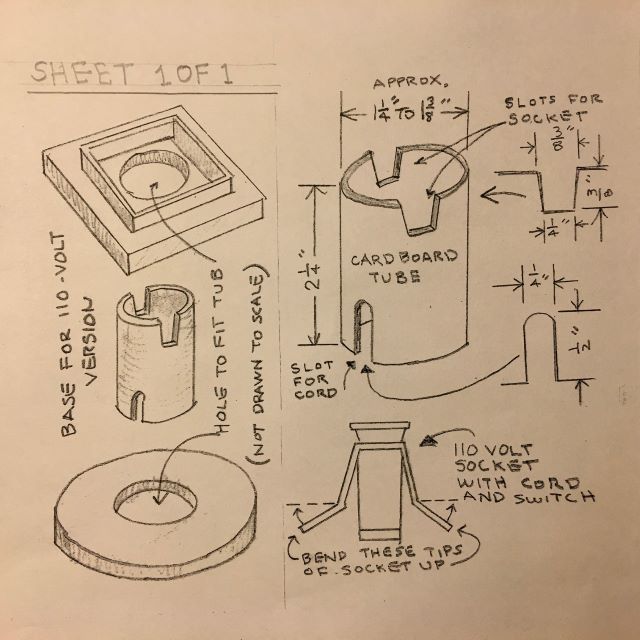 SHEET 1 OF 1
APPROX.
1 1/4" TO 1 3/8"
SLOTS FOR
SOCKET
3/8"
3/8"
1/4"
CARDBOARD
TUBE
2 1/4"
1/4"
1/2"
SLOT
FOR
CORD
BASE FOR 110-VOLT
VERSION
HOLE TO FIT TUB
(NOT DRAWN TO SCALE)
110 VOLT
SOCKET
WITH CORD
AND SWITCH
BEND THESE TIPS
OF SOCKET UP